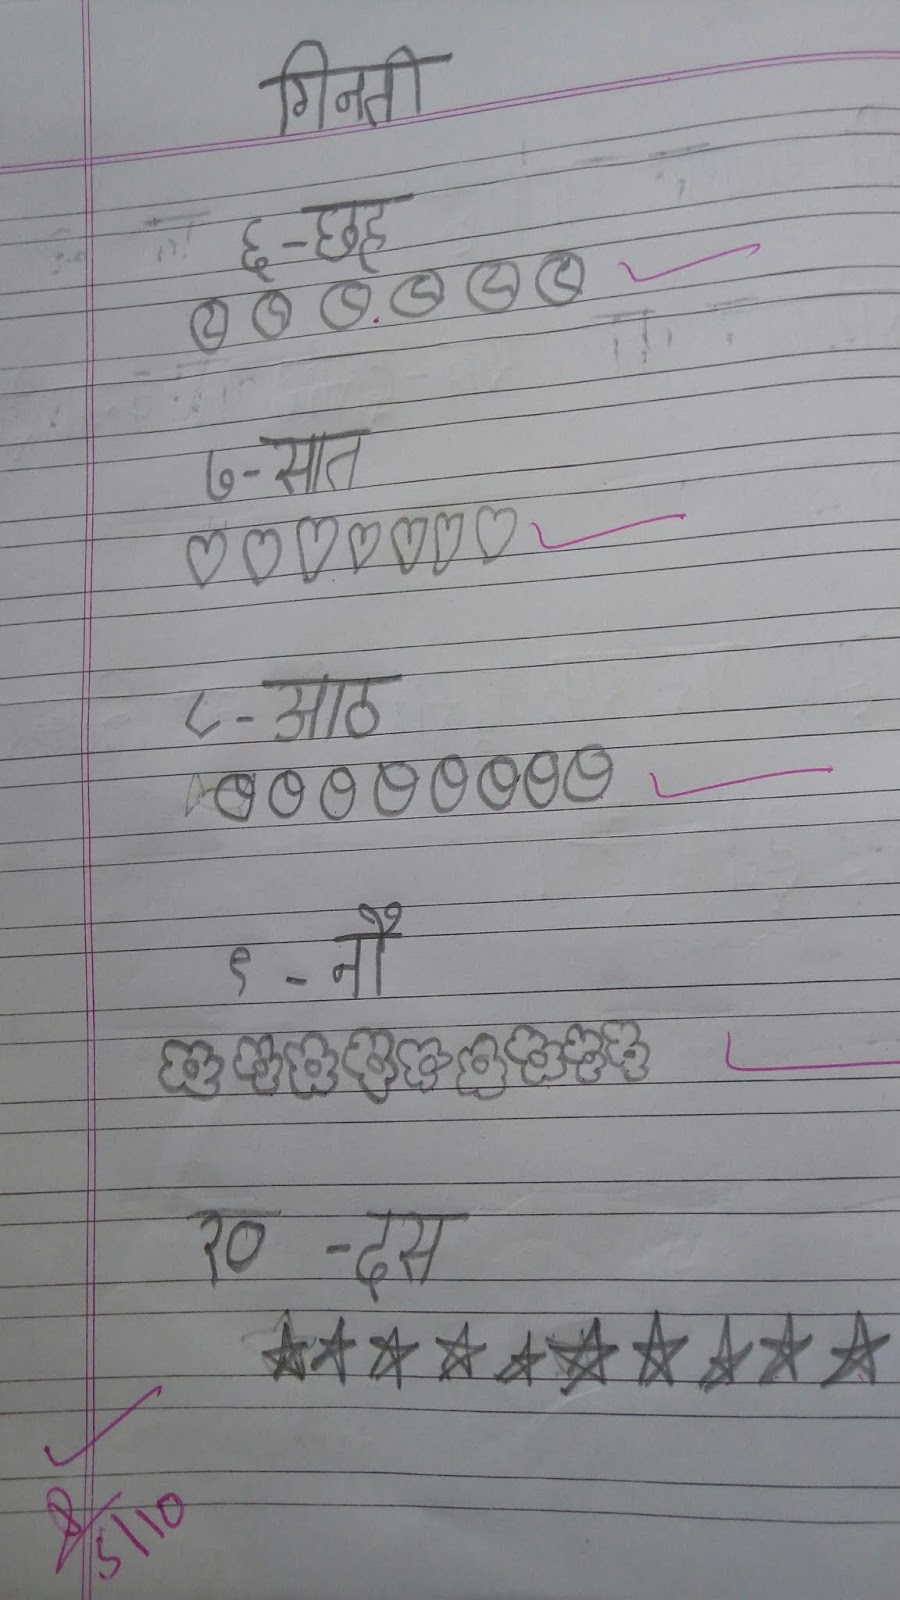 गिनती
६-छह
७-सात
८-आठ
९ - नौ
१० - दस
5/10